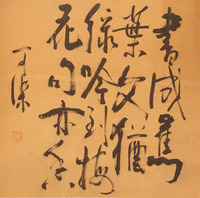 書成蕉
葉文猶
綠吟到梅
花句亦香